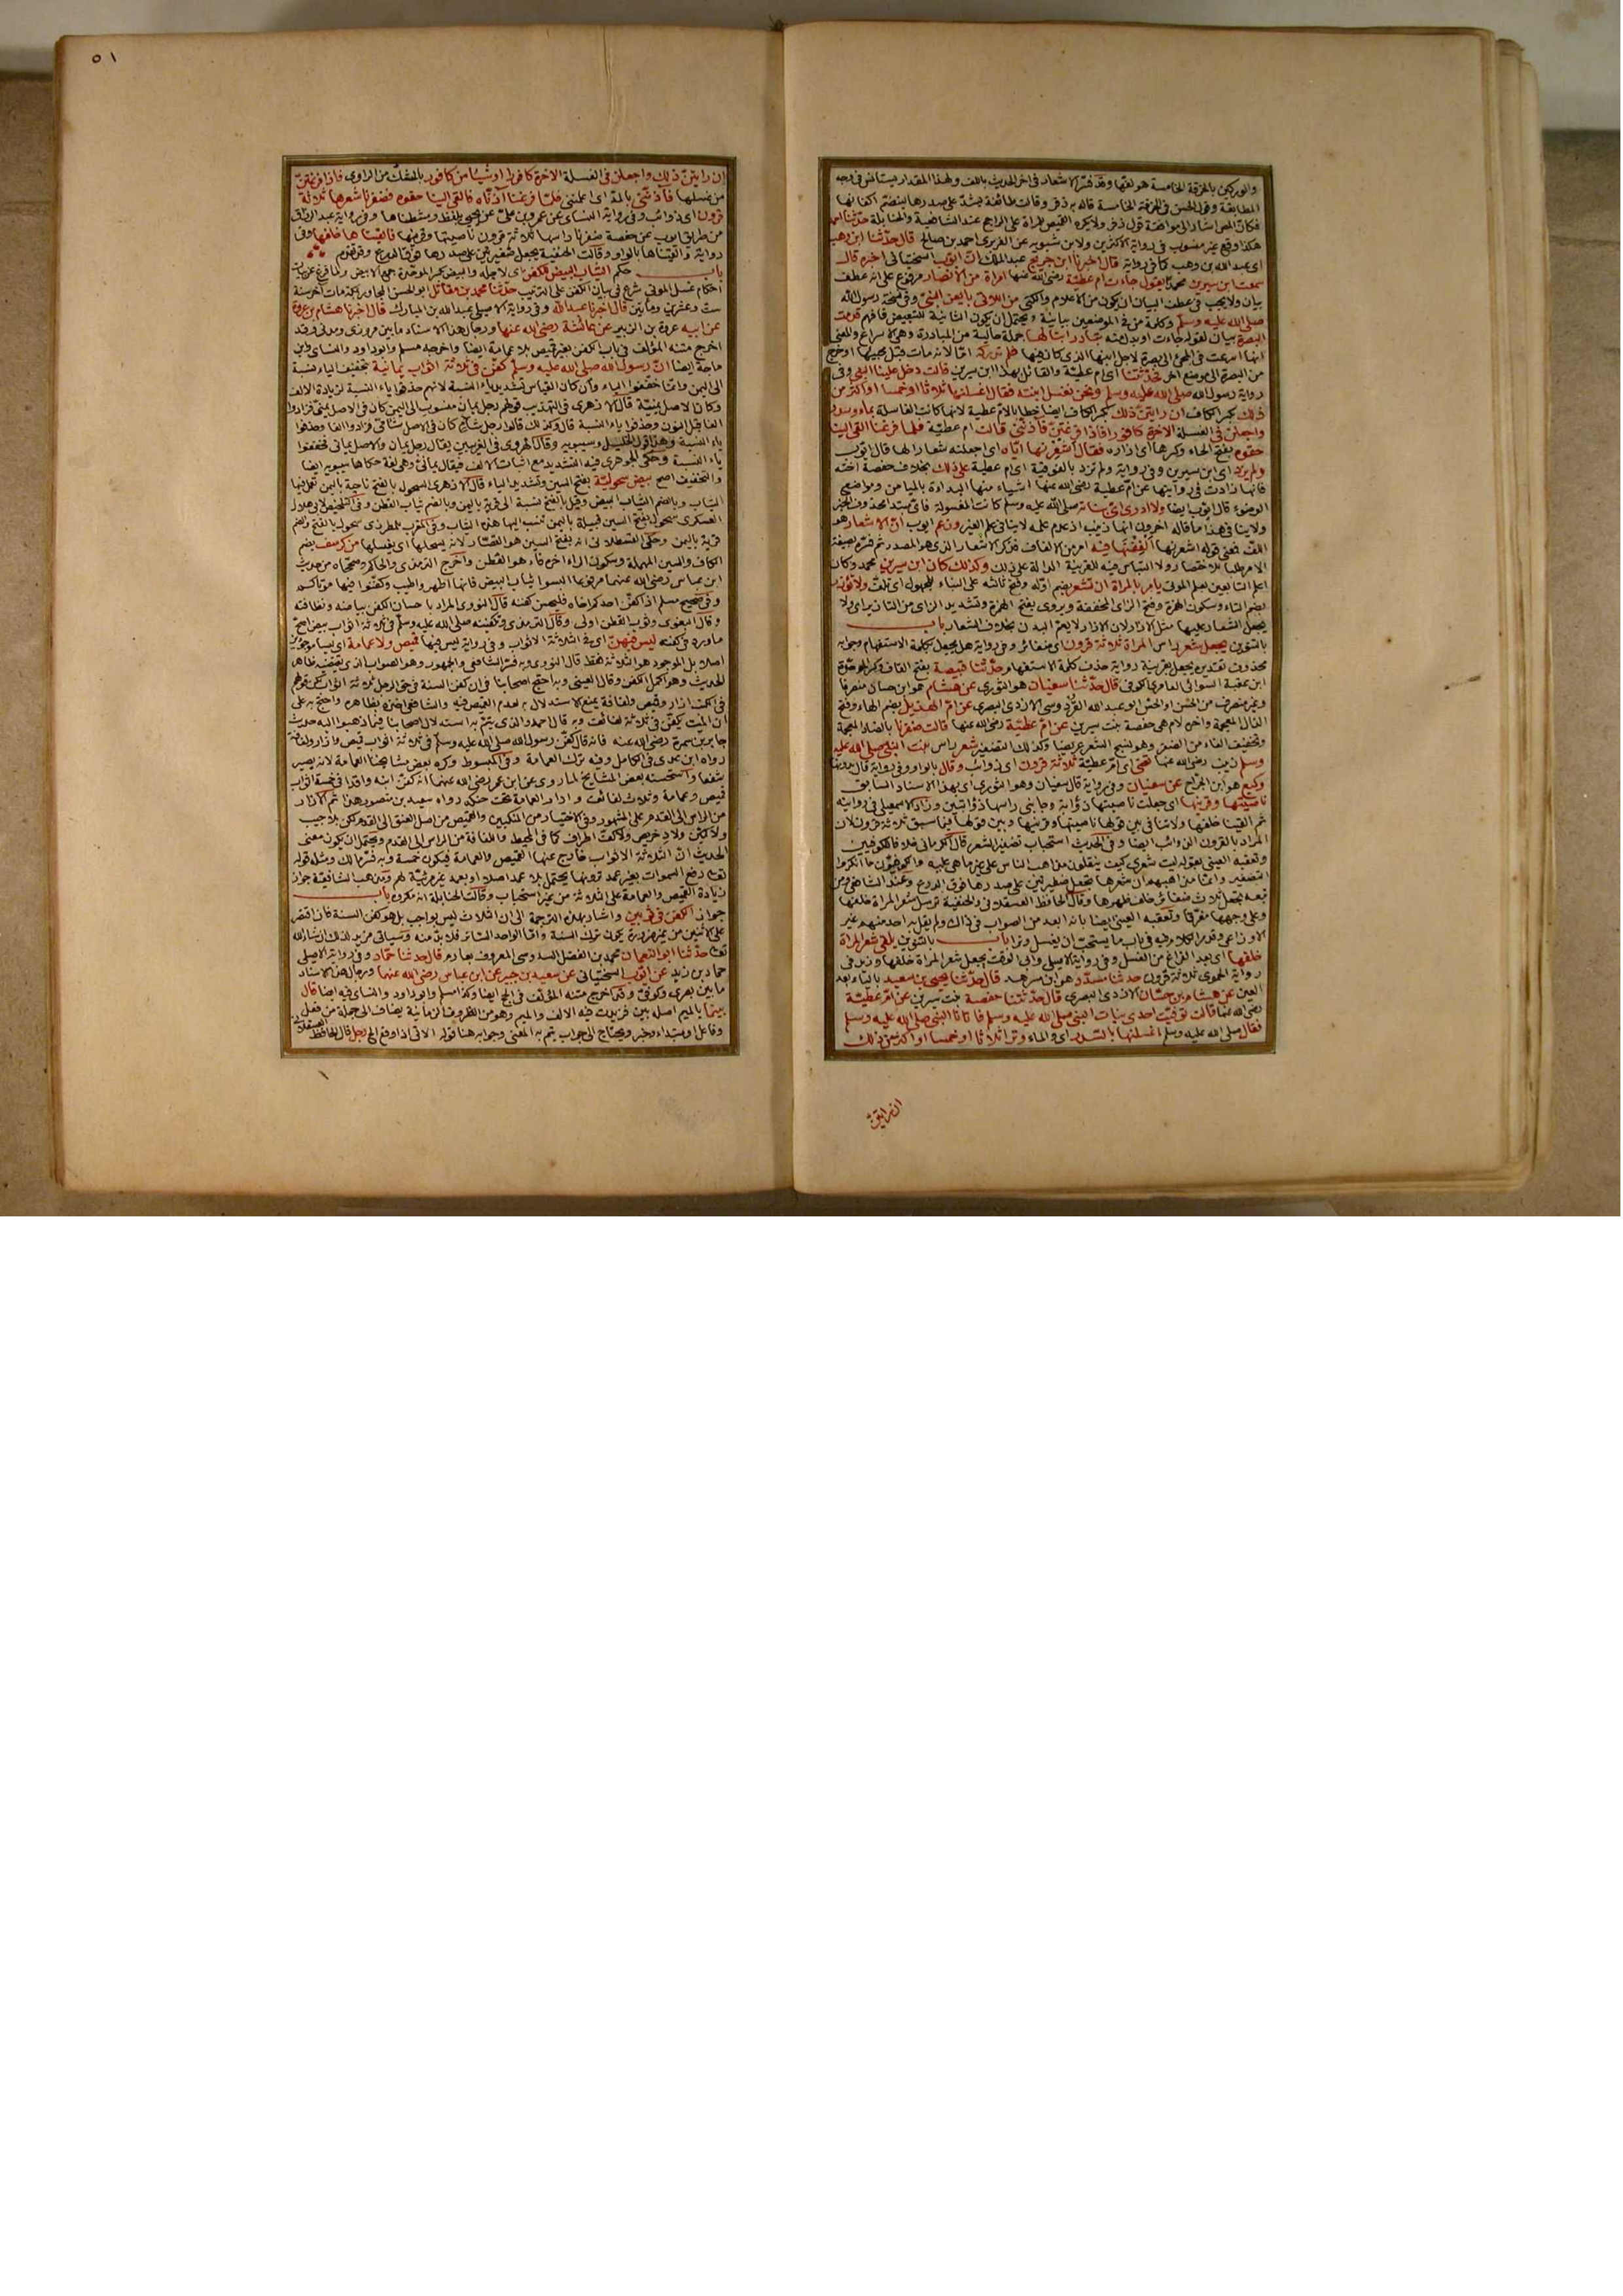 والوركين بالخرقة الخامسة هو لفها وقد فسر الاشعار في اخر الحديث باللف وبهذا المقدار يستانس في وجه
المطابقة وقول الحسن في الخرقة الخامسة قال به زفر وقالت طائفة تشد على صدرها لينضم اكفانها
فكان المص اشار الى موافقة قول زفر ولا يكره القميص للمراة على الراجح عند الشافعية والحنابلة حدثنا احمد
هكذا وقع غير منسوب في رواية الاكثرين ولابن شبويه عن الفربري احمد بن صالح قال حدثنا ابن وهب
اى عبد الله بن وهب كما في رواية قال اخبرنا ابن جريج عبد الملك ان ايوب السختياني اخبره قال
سمعت ابن سيرين محمدا يقول جاءت ام عطية رضي الله عنها امراة من الانصار مرفوع على انه عطف
بيان ولا يجب في عطف البيان ان يكون من الاعلام والكنى من اللاتي بايعن النبي وفي نسخة رسول الله
صلى الله عليه وسلم وكلمة من في الموضعين بيانية ويحتمل ان يكون الثانية للتبعيض فافهم قدمت
البصرة بيان لقوله جاءت او بدل منه تبادر ابنا لها جملة حالية من المبادرة وهي الاسراع والمعنى
انها اسرعت في المجئ الى بصرة لاجل ابنها الذى كان فيها فلم تدركه اما لانه مات قبل مجيئها او خرج
من البصرة الى موضع اخر فحدثتنا اى ام عطية والقائل بهذا ابن سيرين قالت دخل علينا النبي وفي
رواية رسول الله صلى الله عليه وسلم ونحن نغسل ابنته فقال اغسلنها ثلاثا او خمسا او اكثر من
ذلك بكسر الكاف ان رايتن ذلك بكسر الكاف ايضا خطابا لام عطية لانها كانت الغاسلة بماء وسدر
واجعلن في الغسلة الاخرة كافورا فاذا فرغتن فاذنني قالت ام عطية فلما فرغنا القى الينا
حقوه بفتح الحاء وكسرها اى ازاره فقال اشعرنها اياه اى اجعلنه شعارا لها قال ايوب
ولم يزد اى ابن سيرين وفي رواية ولم تزد بالفوقية اى ام عطية على ذلك بخلاف حفصة اخته
فانها زادت في روايتها عن ام عطية رضي الله عنها اشياء منها البداءة بالميامن ومواضع
الوضوء قال ايوب ايضا ولا ادرى اى بناته صلى الله عليه وسلم كانت المغسولة فاى مبتدا محذوف الخبر
ولا ينافي هذا ما قاله اخرون انها زينب اذ عدم علمه لا ينافي علم الغير وزعم ايوب ان الاشعار هو
اللف فمعنى قوله اشعرنها الففنها فيه امر من الالفاف فذكر الاشعار الذى هو المصدر ثم فسره بصيغة
الامر طلبا للاختصار ولا التباس فيه للقرينة الدالة على ذلك وكذلك كان ابن سيرين محمد وكان
اعلم التابعين بعلم الموتى يامر بالمراة ان تشعر بضم اوله وفتح ثالثه على البناء للمجهول اى تلف ولا تؤزر
بضم التاء وسكون الهمزة وفتح الزاى المخففة ويروى بفتح الهمزة وتشديد الزاى من التازير اى ولا
يجعل الشعار عليها مثل الازار لان الازار لا يعم البدن بخلاف الشعار باب
بالتنوين يجعل شعر راس المراة ثلاثة قرون اى ضفائر وفي رواية هل يجعل بكلمة الاستفهام وجوابه
محذوف تقديره يجعل بقرينة رواية حذف كلمة الاستفهام حدثنا قبيصة بفتح القاف وكسر الموحدة
ابن عقبة السوائي العامرى الكوفي قال حدثنا سفيان هو الثوري عن هشام هو ابن حسان منصرفا
وغير منصرف من الحسن او الحس ابو عبد الله القردوسى الازدى البصرى عن ام الهذيل بضم الهاء وفتح
الذال المعجمة واخره لام هي حفصة بنت سيرين عن ام عطية رضي الله عنها قالت ضفرنا بالضاد المعجمة
وتخفيف الفاء من الضفر وهو نسج الشعر عريضا وكذلك التضفير شعر راس بنت النبي صلى الله عليه
وسلم زينب رضي الله عنها تعنى اى ام عطية ثلاثة قرون اى ذوائب وقال بالواو وفي رواية قال بدونها
وكيع هو ابن الجراح عن سفيان وفي رواية قال سفيان وهو الثوري اى بهذا الاسناد السابق
ناصيتها وقرنيها اى جعلت ناصيتها ذؤابة وجانبى راسها ذؤابتين وزاد الاسمعيلى في روايته
ثم القينا خلفها ولا تنافي بين قولها ناصيتها وقرنيها وبين قولها فيما سبق ثلاثة قرون لان
المراد بالقرون الذوائب ايضا وفي الحديث استحباب تضفير الشعر قال الكرماني خلافا للكوفيين
وتعقبه العيني بقوله ليت شعرى كيف ينقلون مذاهب الناس على غير ما هي عليه والكوفيون ما انكروا
التضفير وانما مذاهبهم ان شعرها يجعل ضفيرتين على صدرها فوق الدرع وعند الشافعي ومن
تبعه يجعل ثلاث ضفائر خلف ظهرها وقال الحافظ العسقلاني والحنفية ترسل شعر المراة خلفها
وعلى وجهها مفرقا وتعقبه العيني ايضا بانه ابعد من الصواب في ذلك ولم يقل به احد منهم غير
الاوزاعى وقد مر الكلام فيه في باب ما يستحب ان يغسل وترا باب بالتنوين يلقى شعر المراة
خلفها اى بعد الفراغ من الغسل وفي رواية الاصيلى وابى الوقت يجعل شعر المراة خلفها وزيد في
رواية الحموى ثلاثة قرون حدثنا مسدد هو ابن مسرهد قال حدثنا يحيى بن سعيد بالياء بعد
العين عن هشام بن حسان الازدى البصرى قال حدثتنا حفصة بنت سيرين عن ام عطية
رضي الله عنها قالت توفيت احدى بنات النبي صلى الله عليه وسلم فاتانا النبي صلى الله عليه وسلم
فقال صلى الله عليه وسلم اغسلنها بالسدر اى والماء وترا ثلاثا او خمسا او اكثر من ذلك
ان رايتن
٥١
ان رايتن ذلك واجعلن في الغسلة الاخرة كافورا او شيئا من كافور بالشك من الراوى فاذا فرغتن
من غسلها فاذنني بالمد اى اعلمنني فلما فرغنا اذناه فالقى الينا حقوه فضفرنا شعرها ثلاثة
قرون اى ذوائب وفي رواية النسائى عن عمرو بن على عن يحيى بلفظ ومشطناها وفي رواية عبد الرزاق
من طريق ايوب عن حفصة ضفرنا راسها ثلاثة قرون ناصيتها وقرنيها فالقيناها خلفها وفي
رواية والقيناها بالواو وقالت الحنفية يجعل ضفيرتين على صدرها فوق الدرع وقد تقدم
باب حكم الثياب البيض للكفن اى لاجله والبيض بكسر الموحدة جمع الابيض ولما فرغ عن بيان
احكام غسل الموتى شرع في بيان الكفن على الترتيب حدثنا محمد بن مقاتل ابو الحسن المجاور بمكة مات اخر سنة
ست وعشرين ومايتين قال اخبرنا عبد الله وفي رواية الاصيلى عبد الله بن المبارك قال اخبرنا هشام بن عروة
عن ابيه عروة بن الزبير عن عائشة رضي الله عنها ورجال هذا الاسناد ما بين مروزى ومدنى وقد
اخرج متنه المؤلف في باب الكفن بغير قميص بلا عمامة ايضا واخرجه مسلم وابو داود والنسائى وابن
ماجة ايضا ان رسول الله صلى الله عليه وسلم كفن في ثلاثة اثواب يمانية بتخفيف الياء نسبة
الى اليمن وانما خففوا الياء وان كان القياس تشديد ياء النسبة لانهم حذفوا ياء النسبة لزيادة الالف
وكان الاصل يمنية قال الازهرى في التهذيب قولهم رجل يمان منسوب الى اليمن كان في الاصل يمنى فزادوا
الفا قبل النون وحذفوا ياء النسبة قال وكذلك قالوا رجل شآم كان في الاصل شامى فزادوا الفا وحذفوا
ياء النسبة وهذا قول الخليل وسيبويه وقال الهروى في الغريبين يقال رجل يمان والاصل يمانى فخففوا
ياء النسبة وحكى الجوهرى فيه التشديد مع اثبات الالف فيقال يمانى وهي لغة حكاها سيبويه ايضا
والتخفيف اصح بيض سحولية بفتح السين وتشديد الياء قال الازهرى السحول بالفتح ناحية باليمن تعمل فيها
الثياب وبالضم الثياب البيض وقيل بالفتح نسبة الى قرية باليمن وبالضم ثياب القطن وفي التلخيص لابى هلال
العسكرى سحول بفتح السين قبيلة باليمن تنسب اليها هذه الثياب وفي المغرب للمطرزى سحول بالفتح والضم
قرية باليمن وحكى القسطلانى انه بفتح السين هو القصار لانه يسحلها اى يغسلها من كرسف بضم
الكاف والسين المهملة وسكون الراء اخره فاء هو القطن واخرج الترمذى والحاكم وصححاه من حديث
ابن عباس رضي الله عنهما مرفوعا البسوا ثياب البيض فانها اطهر واطيب وكفنوا فيها موتاكم
وفي صحيح مسلم اذا كفن احدكم اخاه فليحسن كفنه قال النووى المراد باحسان الكفن بياضه ونظافته
وقال البغوى وثوب القطن اولى وقال الترمذى وتكفينه صلى الله عليه وسلم في ثلاثة اثواب بيض اصح
ما ورد في كفنه ليس فيهن اى في الثلاثة الاثواب وفي رواية ليس فيها قميص ولا عمامة اى ليسا موجودين
اصلا بل الموجود هو الثلاثة فقط قال النووى وبه فسر الشافعى والجمهور وهو الصواب الذى يقتضيه ظاهر
الحديث وهو اكمل الكفن وقال العينى وبه احتج اصحابنا في ان كفن السنة في حق الرجل ثلاثة اثواب لكن قولهم
في الكتب ازار وقميص ولفافة يمنع الاستدلال به لعدم القميص فيه والشافعى اخذ بظاهره واحتج به على
ان الميت يكفن في ثلاثة لفائف وبه قال احمد والذى يتم به استدلال اصحابنا فيما ذهبوا اليه حديث
جابر بن سمرة رضي الله عنه فانه قال كفن رسول الله صلى الله عليه وسلم في ثلاثة اثواب قميص وازار ولفافة
رواه ابن عدى في الكامل وفيه ترك العمامة وفي المبسوط وكره بعض مشايخنا العمامة لانه يصير
شفعا واستحسنه بعض المشايخ لما روى عن ابن عمر رضي الله عنهما انه كفن ابنه واقدا في خمسة اثواب
قميص وعمامة وثلاث لفائف وادار العمامة تحت حنكه رواه سعيد بن منصور هذا ثم الازار
من الراس الى القدم على المشهور وفي الاختيار من المنكبين والقميص من اصل العنق الى القدم لكن بلا جيب
ولا كمين ولا دخريص ولا كف اطراف كما في المحيط واللفافة من الراس الى القدم ويحتمل ان يكون معنى
الحديث ان الثلاثة الاثواب خارج عنها القميص والعمامة فيكون خمسة وبه فسر مالك ومثله قوله
تعالى رفع السموات بغير عمد ترونها يحتمل بلا عمد اصلا او بعمد غير مرئية لهم ومذهب الشافعية جواز
زيادة القميص والعمامة على الثلاثة من غير استحباب وقالت الحنابلة انه مكروه باب
جواز الكفن في ثوبين واشار بهذه الترجمة الى ان الثلاث ليس بواجب بل هو كفن السنة فان اقتصر
على الاثنين من غير ضرورة يكون ترك السنة واما الواحد الساتر فلا بد منه وسياتى مزيد لذلك ان شاء الله
تعالى حدثنا ابو النعمان محمد بن الفضل السدوسى المعروف بعارم قال حدثنا حماد وفي رواية الاصيلى
حماد بن زيد عن ايوب السختيانى عن سعيد بن جبير عن ابن عباس رضي الله عنهما ورجال هذا الاسناد
ما بين بصرى وكوفى وقد اخرج متنه المؤلف في الحج ايضا وكذا مسلم وابو داود والنسائى فيه ايضا قال
بينما بالميم اصله بين فزيدت فيه الالف والميم وهو من الظروف الزمانية يضاف الى جملة من فعل
وفاعل او مبتداء وخبر ويحتاج الى جواب يتم به المعنى وجوابه هنا قوله الاتى اذ وقع الى رجل قال الحافظ العسقلانى